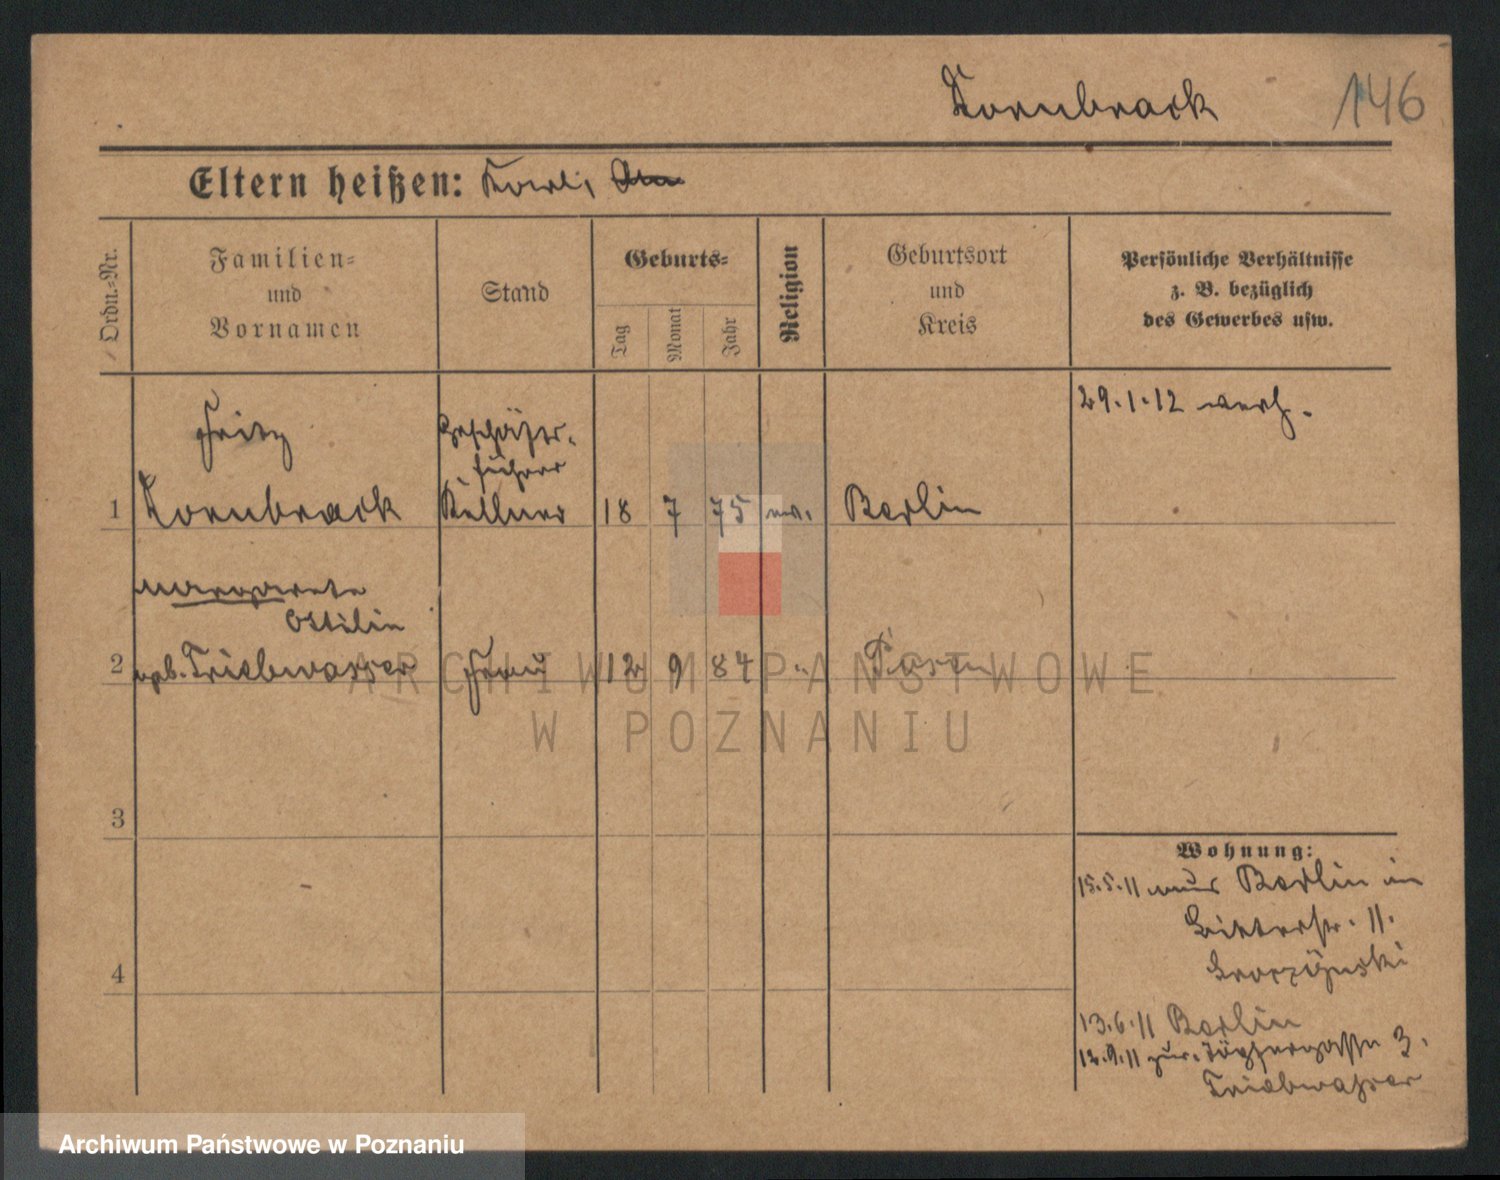 Kornbrack 146
Eltern heißen: Karl,
Ordn.-Nr.
Familien-
und
Vornamen
Stand
Geburts-
Tag
Monat
Jahr
Religion
Geburtsort
und
Kreis
Persönliche Verhältnisse
z. B. bezüglich
des Gewerbes usw.
29.1.12 verh.
Fritz
Geschäfts-
führer
1 Kornbrack Kellner 18 7 75 ev. Berlin
Margarete
Ottilie
2 geb. Triebwasser Frau 12 9 84 " Posen
ARCHIWUM PAŃSTWOWE
W POZNANIU
3
Wohnung:
15.5.11 aus Berlin in
Bitterstr. 11.
4
13.6.11 Berlin
12.9.11 zur. Töpfergasse 3.
Triebwasser
Archiwum Państwowe w Poznaniu